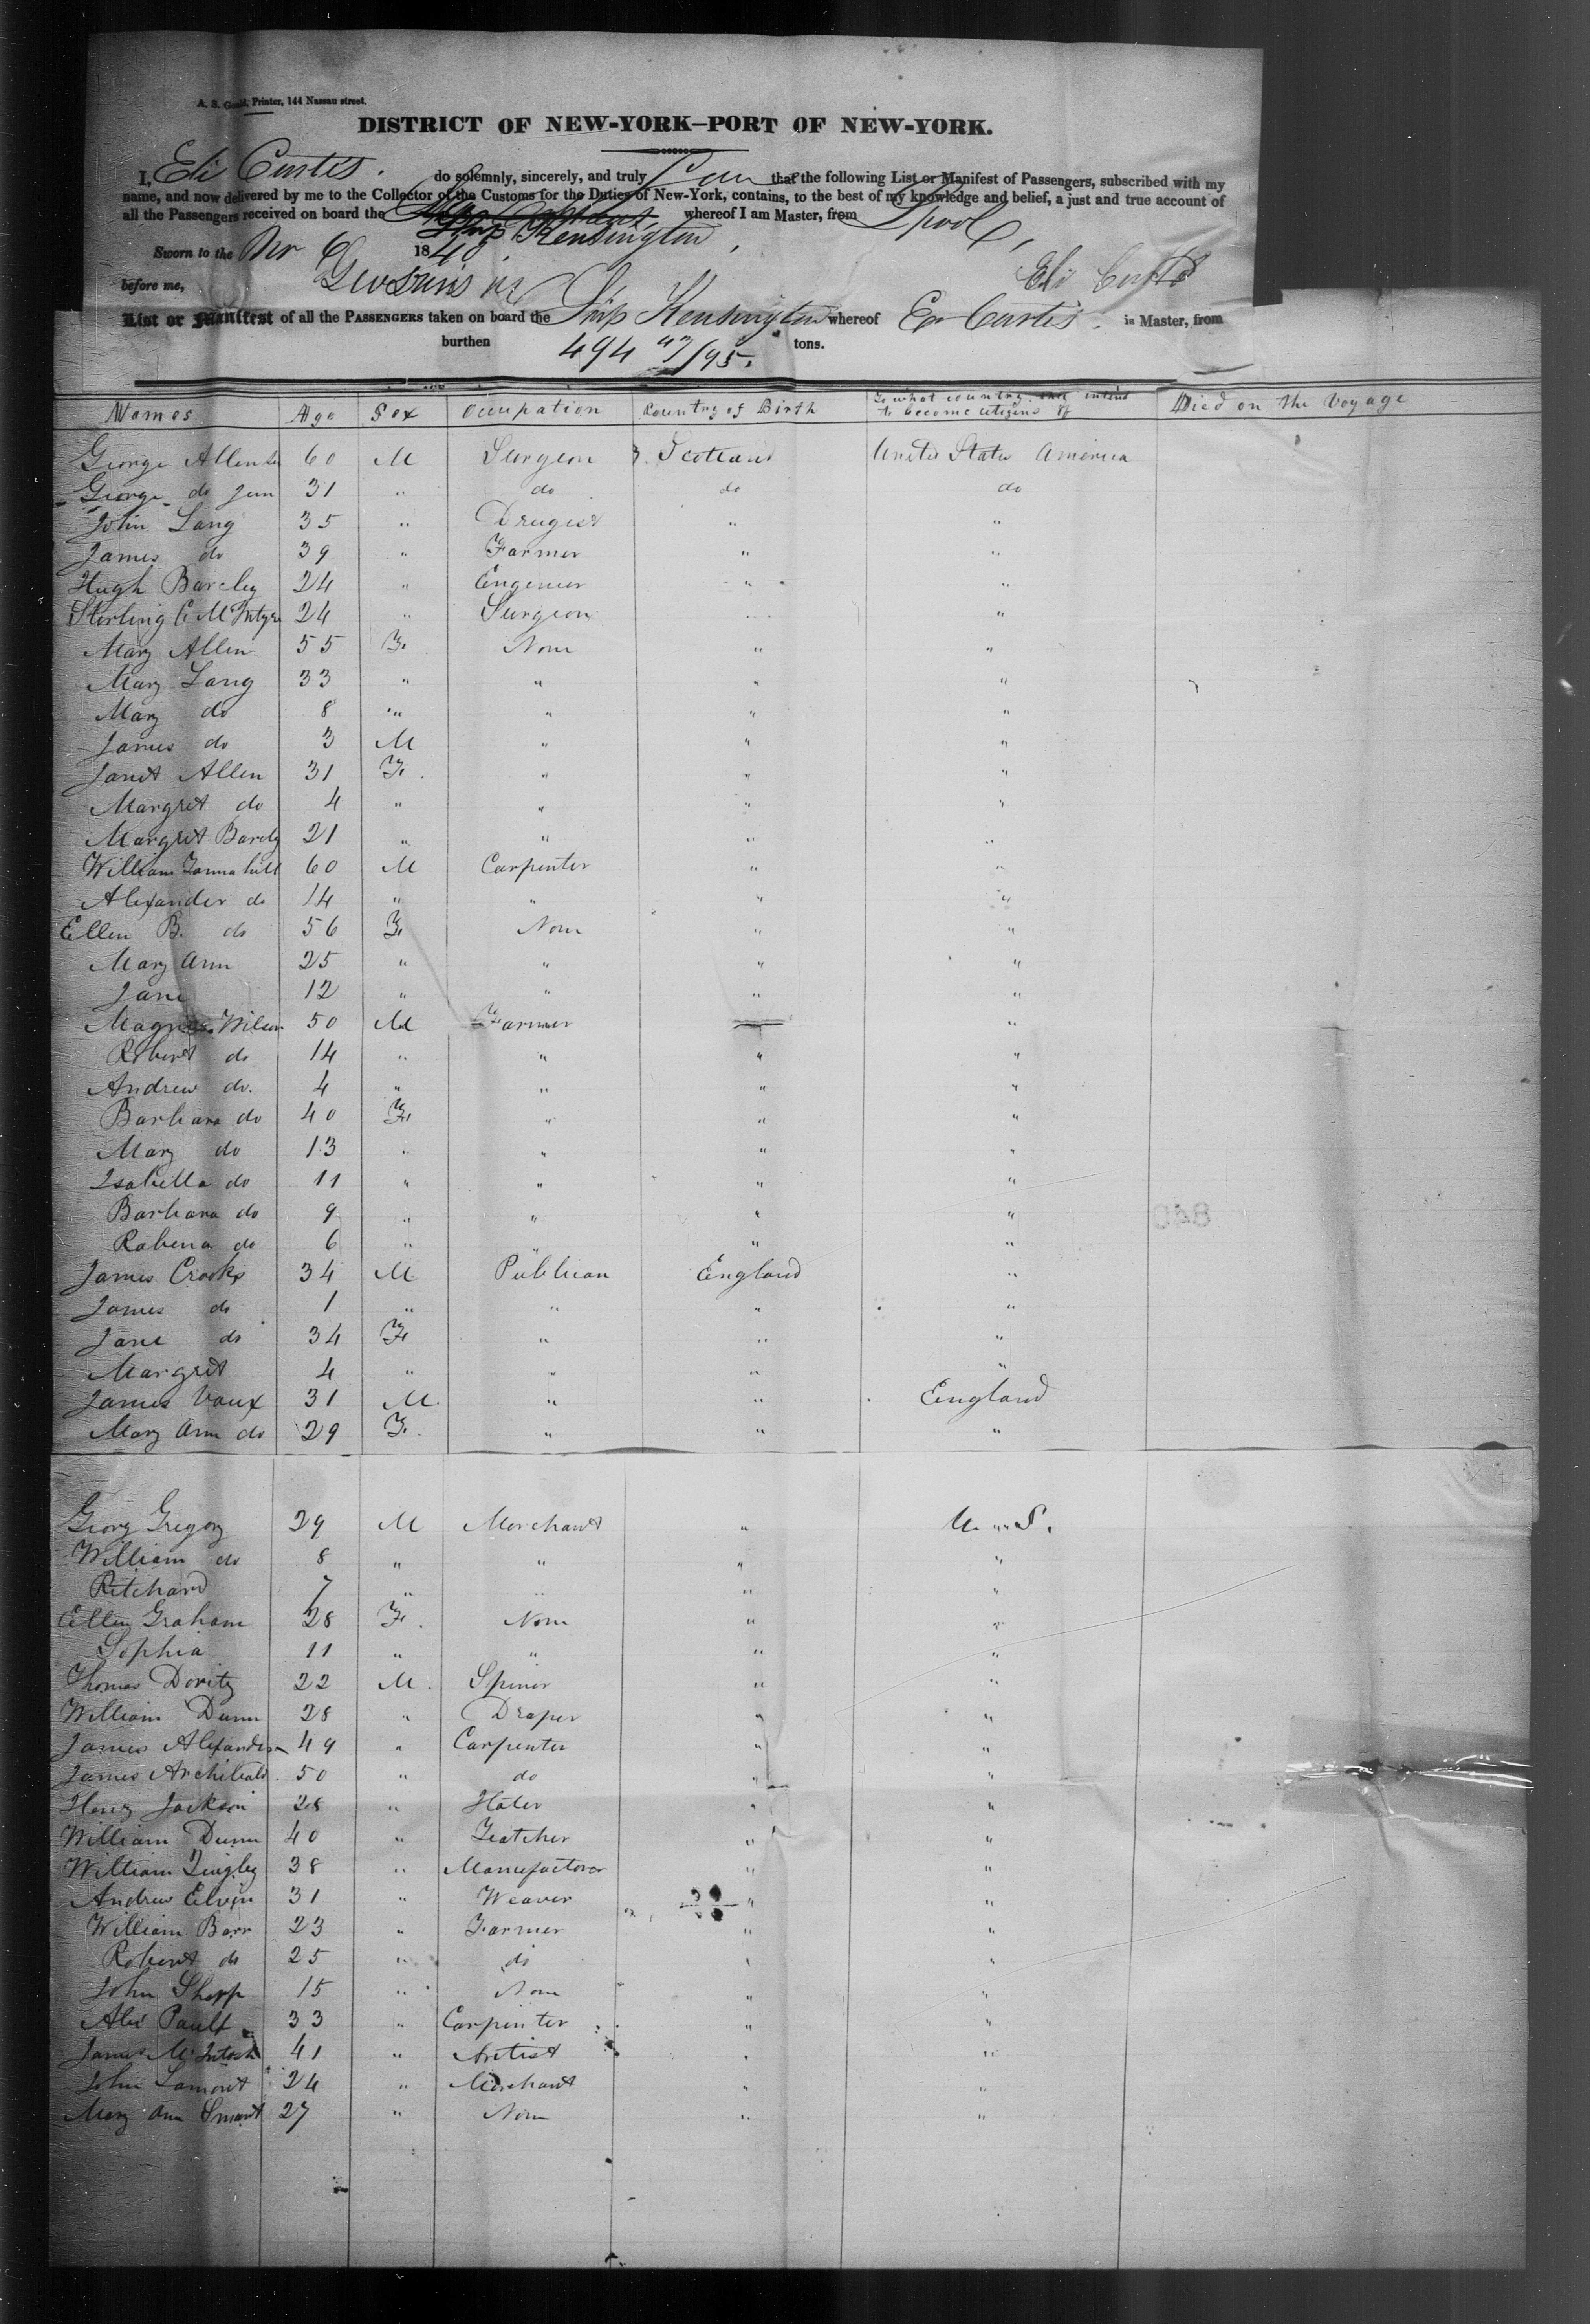 A. S. Gould, Printer, 144 Nassau street.
DISTRICT OF NEW-YORK—PORT OF NEW-YORK.
I, Eli Curtis. do solemnly, sincerely, and truly that the following List or Manifest of Passengers, subscribed with my
name, and now delivered by me to the Collector of the Customs for the Duties of New-York, contains, to the best of my knowledge and belief, a just and true account of
all the Passengers received on board the whereof I am Master, from Lpool
Ship Kensington,
Sworn to the 6 1840
Eli Curtis
before me,
List or Manifest of all the PASSENGERS taken on board the Ship Kensington whereof E Curtis. is Master, from
burthen 494 47/95. tons.
Names Age Sex Occupation Country of Birth To what country they intend to become citizens of Died on the Voyage
George Allen Sr 60 M Surgeon Scotland United States America
George do Jun 31 " do do do
John Lang 35 " Drugist " "
James do 39 " Farmer " "
Hugh Barcley 24 " Engenier " "
Sterling C McIntyre 24 " Surgeon " "
Mary Allen 55 F. None " "
Mary Lang 33 " " " "
Mary do 8 " " " "
James do 3 M " " "
Janet Allen 31 F. " " "
Margret do 4 " " " "
Margret Barcly 21 " " " "
William Tannahill 60 M Carpenter " "
Alexander do 14 " " " "
Ellen B. do 56 F None " "
Mary Ann 25 " " " "
Jane 12 " " " "
Magnus Wilson 50 M Farmer "
Robert do 14 " " " "
Andrew do. 4 " " " "
Barbara do 40 F. " " "
Mary do 13 " " " "
Isabella do 11 " " " "
Barbara do 9 " " " "
Robena do 6 " " " "
James Crooks 34 M Publican England "
James do 1 " " " "
Jane do 34 F " " "
Margret 4 " " " "
James Vaux 31 M. " " England
Mary Ann do 29 F. " " "
Georg Gregory 29 M Merchant " U. S.
William do 8 " " " "
Ritchard 7 " " " "
Ellen Graham 28 F. None " "
Sophia 11 " " " "
Thomas Dority 22 M. Spiner " "
William Dunn 28 " Draper " "
James Alexander 49 " Carpenter " "
James Archibald 50 " do " "
Henry Jackson 28 " Hater " "
William Dunn 40 " Teatcher " "
William 38 " Manufactorer " "
Andrew Elvin 31 " Weaver " "
William Barr 23 " Farmer " "
Robert do 25 " do " "
John Shepp 15 " None " "
Alex Paull 33 " Carpinter " "
James McIntosh 41 " Artist " "
John Lamont 24 " Merchant " "
Mary Ann Smart 27 " None " "